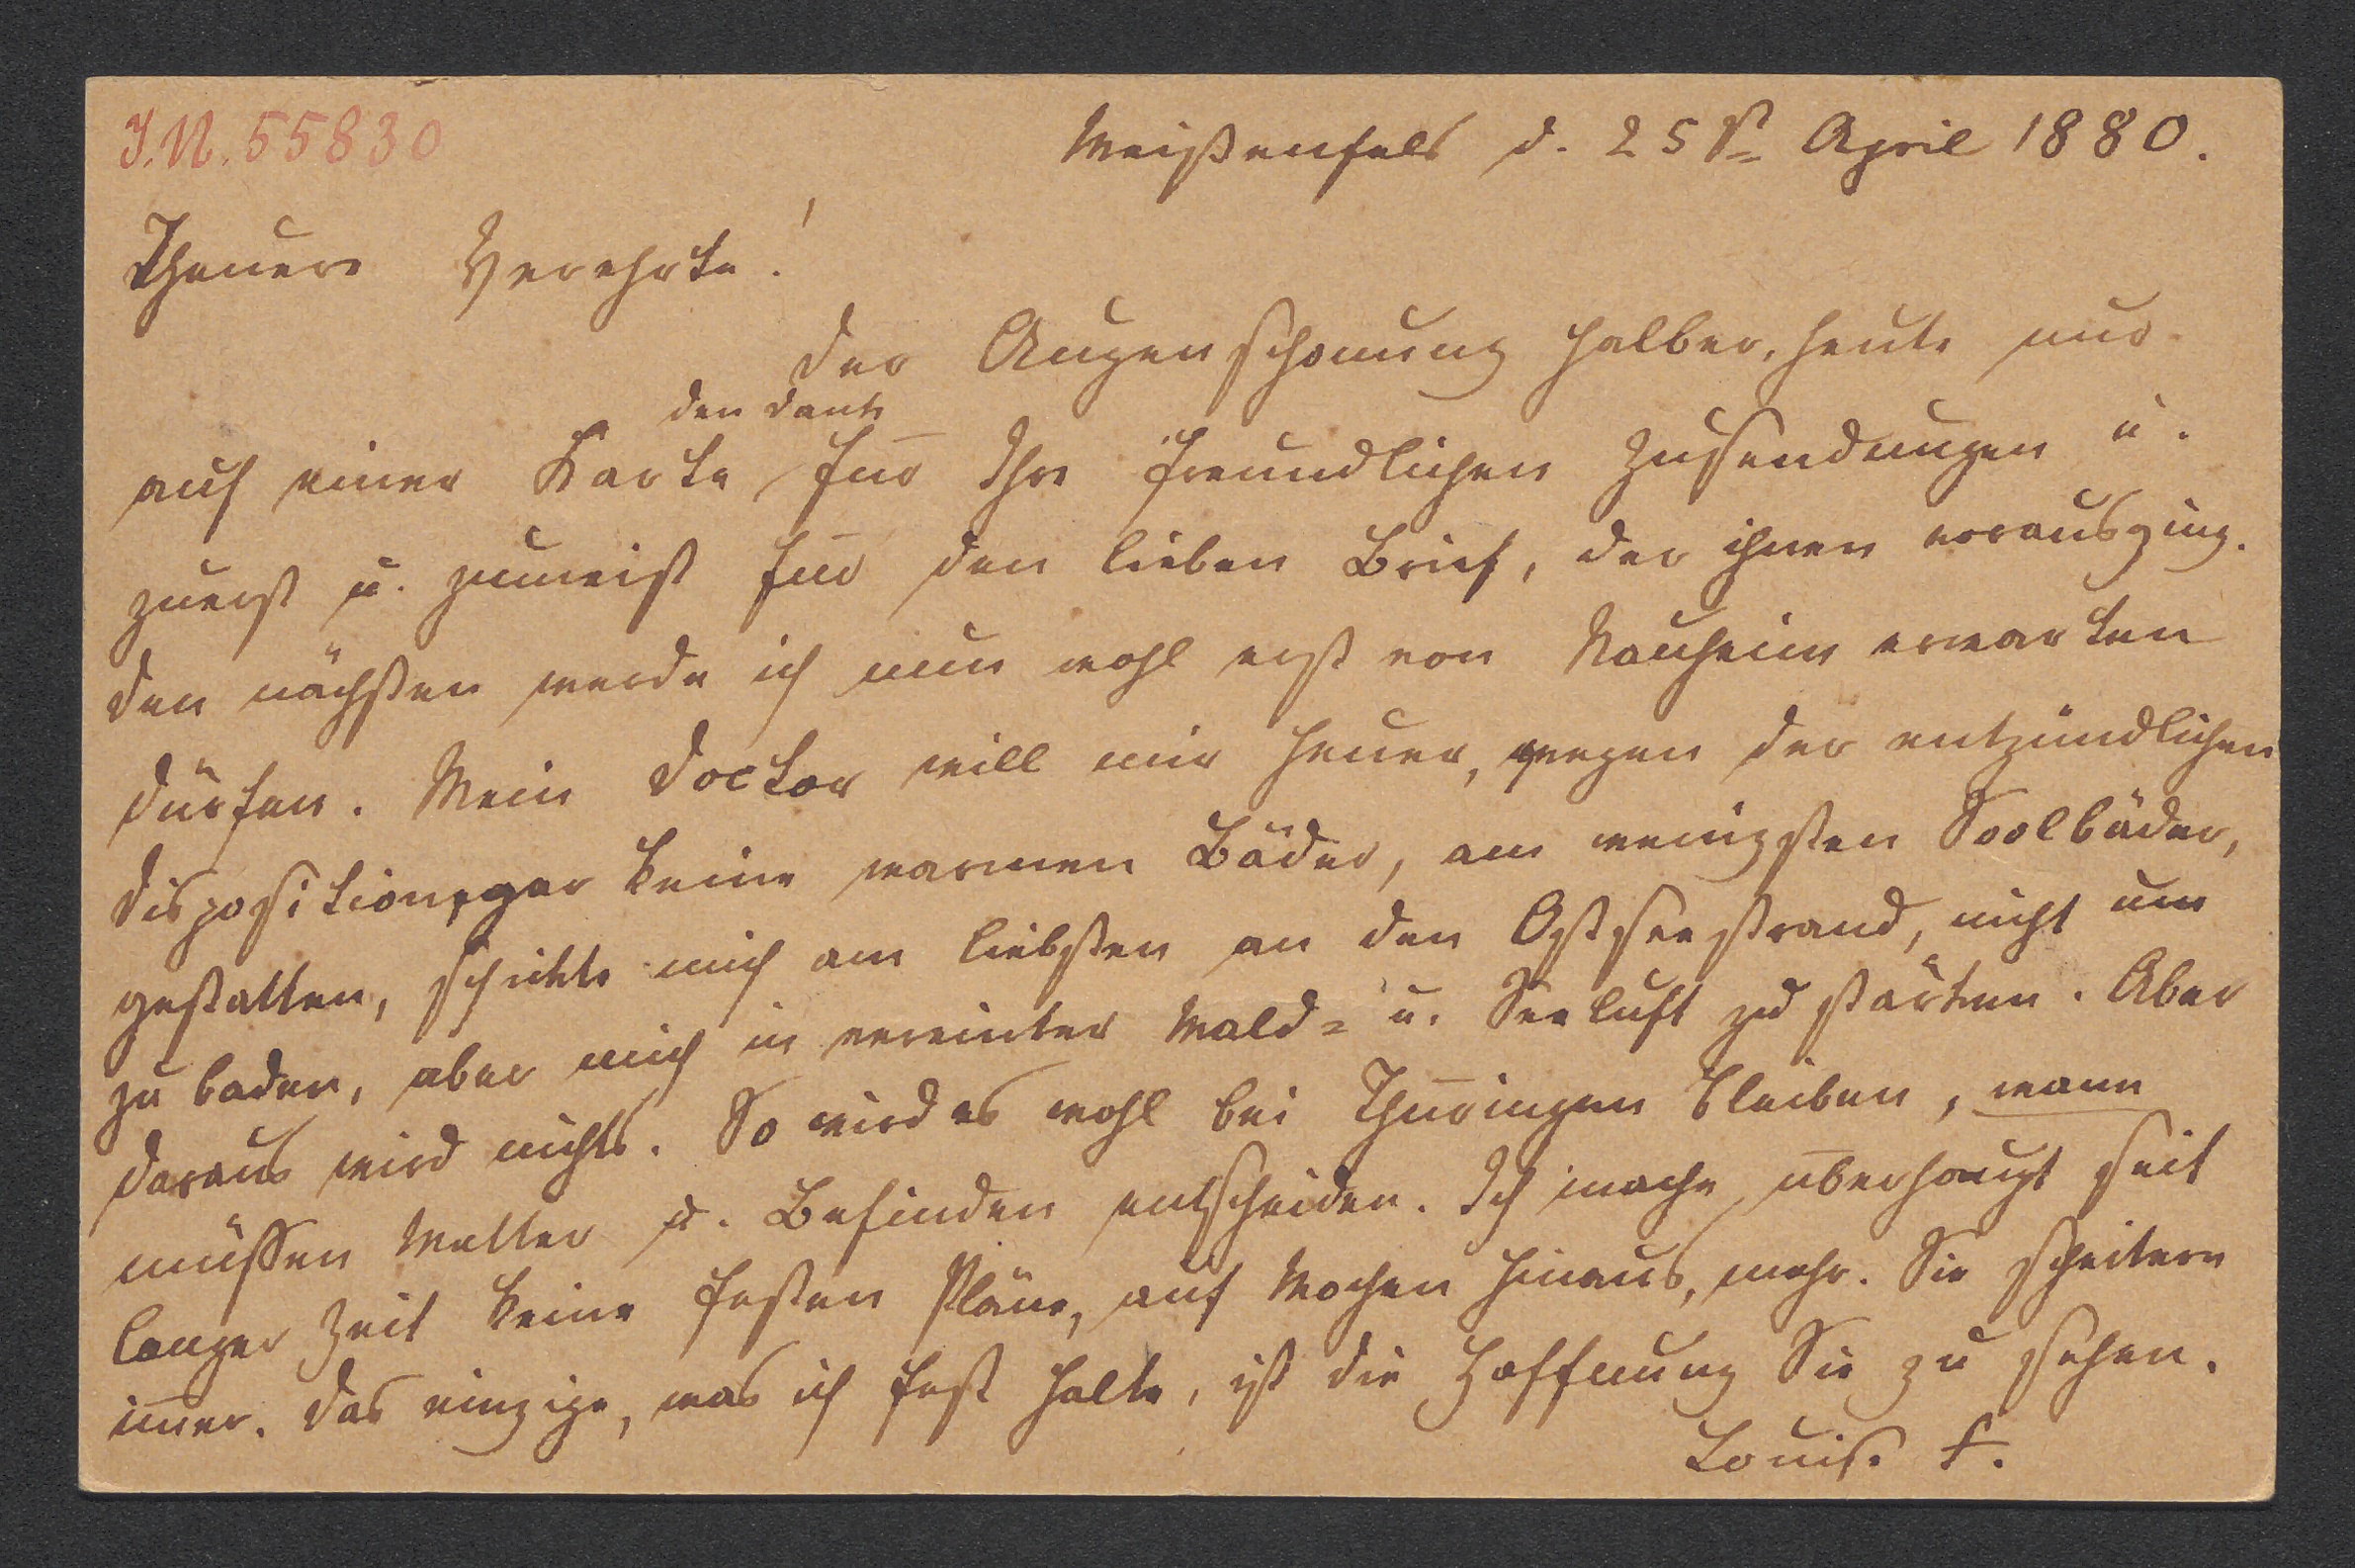 I.N. 55830
Weißenfels d. 25st April 1880.
Theure Verehrte!
Der Augenschonung halber, heute nur
den Dank
auf einer Karte für Ihre freundlichen Zusendungen u.
zuerst u. zumeist für den lieben Brief, der ihnen vorausging.
Den nächsten werde ich nun wohl erst von Nauheim erwarten
dürfen. Mein Doctor will mir heuer, wegen der entzündlichen
Disposition, gar keine warmen Bäder, am wenigsten Soolbäder,
gestatten, schickte mich am liebsten an den Ostseestrand, nicht um
zu baden, aber mich in vereinter Wald- u. Seeluft zu stärken. Aber
daraus wird nichts. So wird es wohl bei Thüringen bleiben, wann
müssen Wetter u. Befinden entscheiden. Ich mache überhaupt seit
langer Zeit keine festen Pläne, auf Wochen hinaus, mehr. Sie scheitern
im̅er. Das einzige, was ich fest halte, ist die Hoffnung Sie zu sehen.
Louise F.